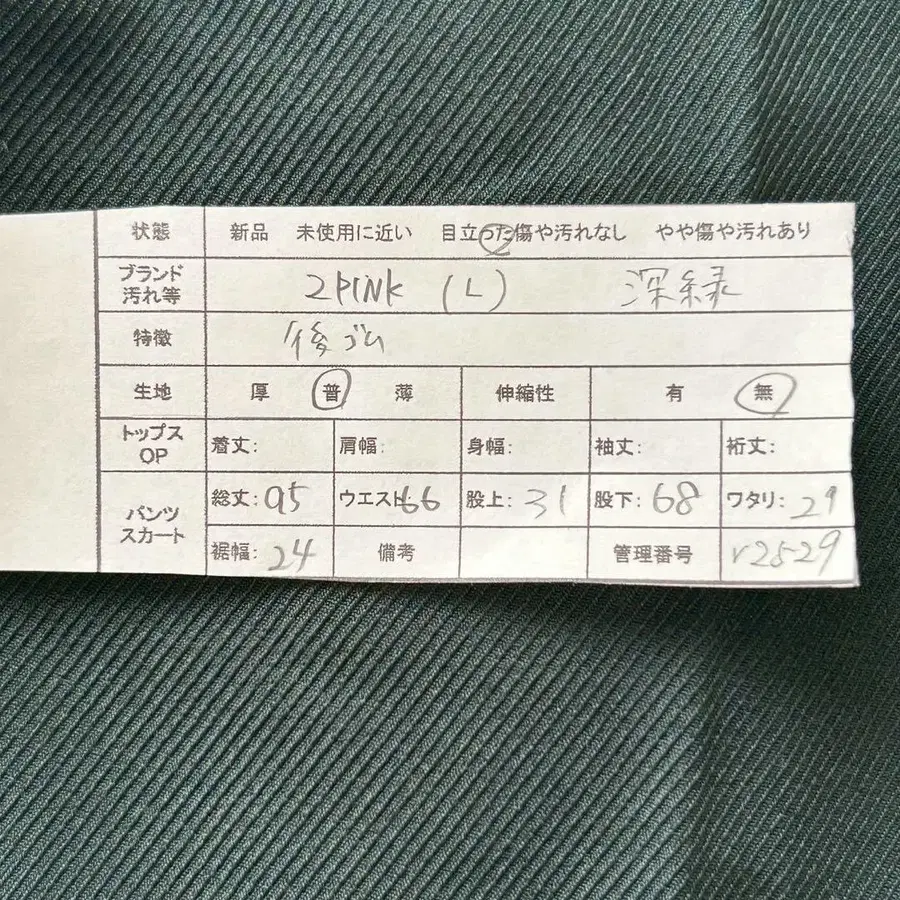 状態 新品 未使用に近い 目立った傷や汚れなし やや傷や汚れあり
ブランド 2PINK (L) 深緑
汚れ等
特徴 後ゴム
生地 厚 普 薄 伸縮性 有 無
トップス 着丈: 肩幅: 身幅: 袖丈: 裄丈:
OP
パンツ 総丈: 95 ウエスト: 66 股上: 31 股下: 68 ワタリ: 29
スカート
裾幅: 24 備考 管理番号 r2529